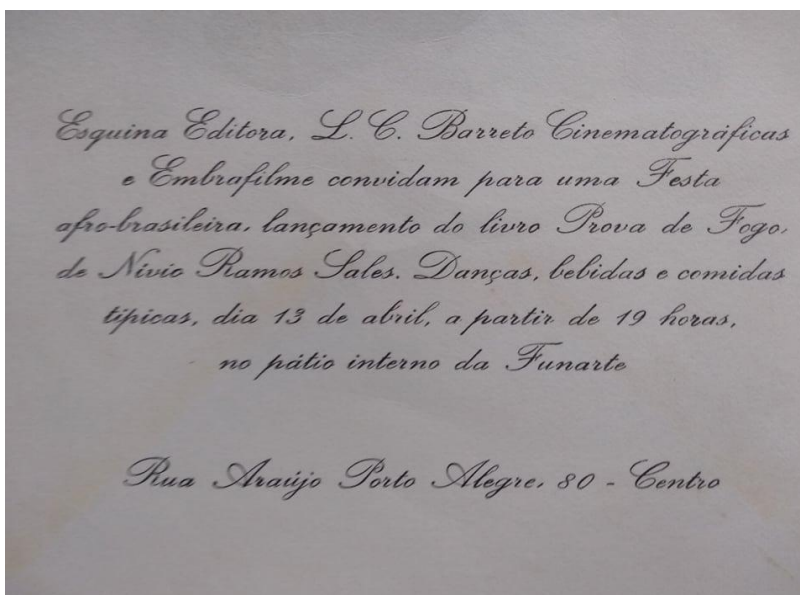 Esquina Editora, L. C. Barreto Cinematográficas
e Embrafilme convidam para uma Festa
afro-brasileira, lançamento do livro Prova de Fogo,
de Nívio Ramos Sales. Danças, bebidas e comidas
típicas, dia 13 de abril, a partir de 19 horas,
no pátio interno da Funarte
Rua Araújo Porto Alegre, 80 - Centro